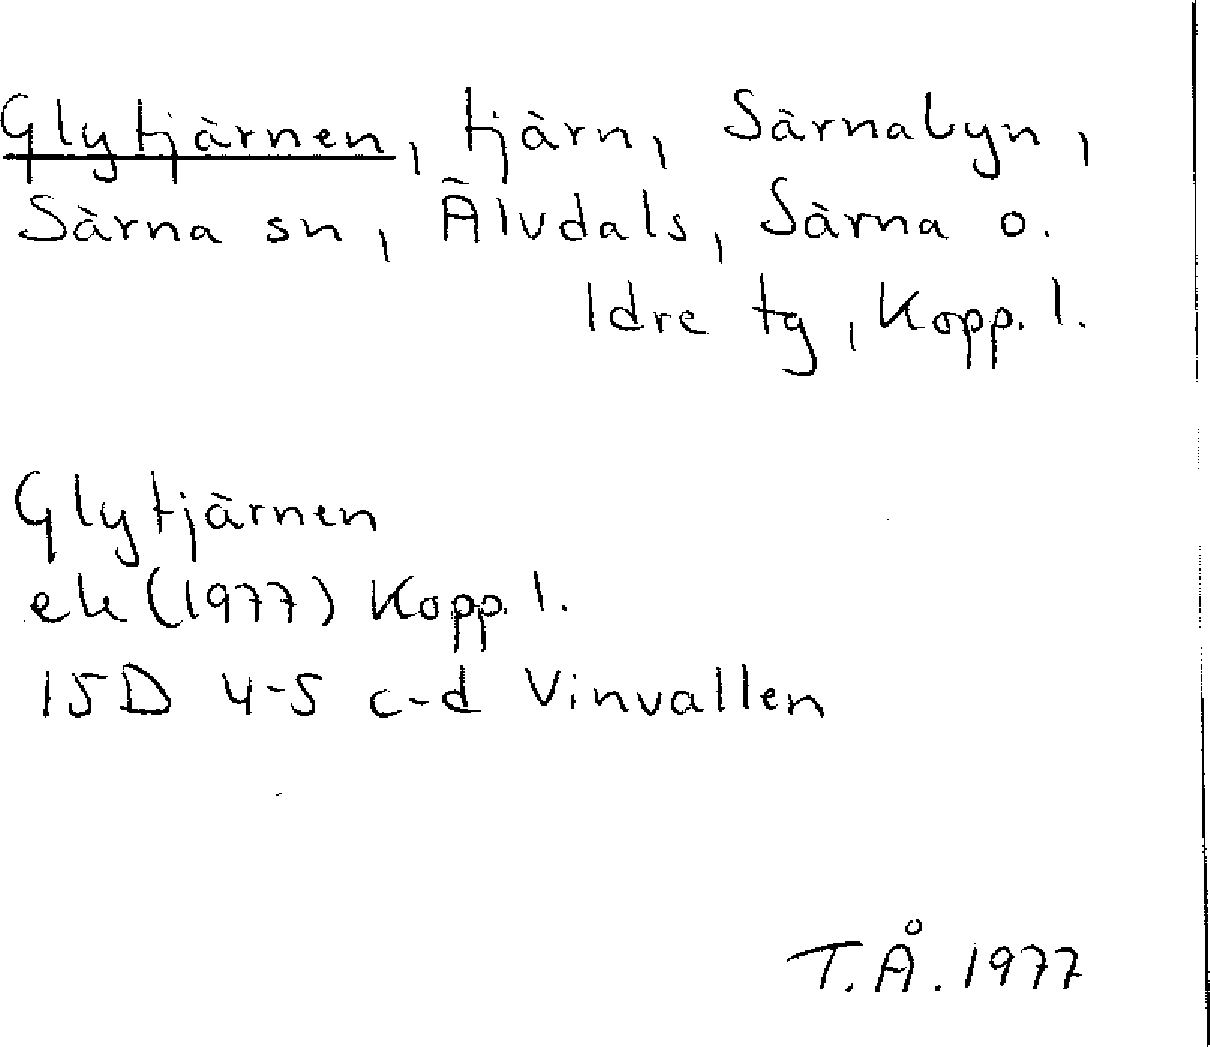 Glytjärnen, tjärn, Särnabyn,
Särna sn, Älvdals, Särna o.
Idre tg, Kopp. l.
Glytjärnen
ek (1977) Kopp. l.
15D 4-5 c-d Vinvallen
T.Å. 1977